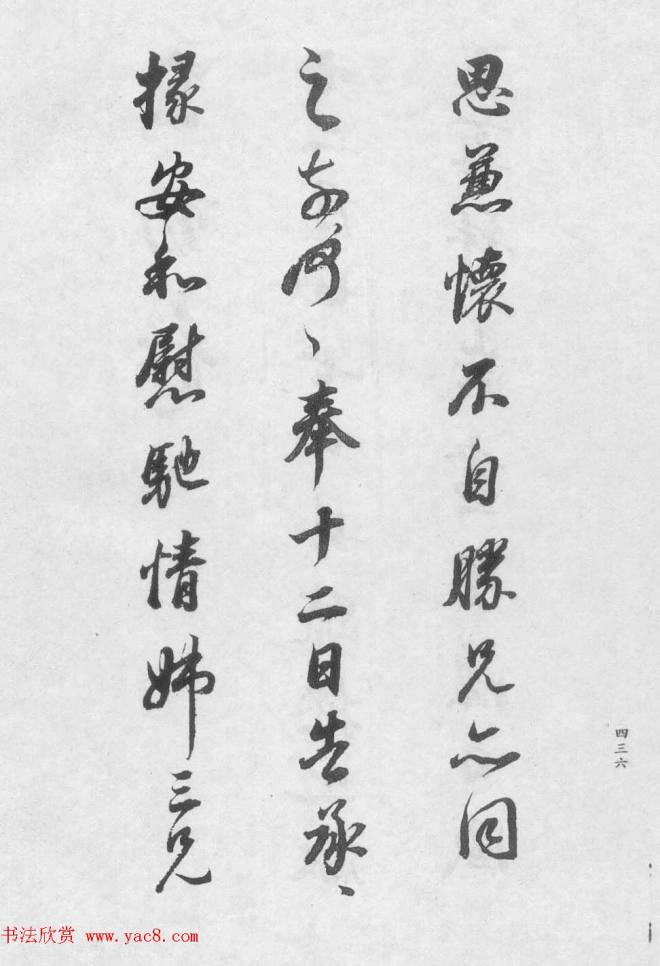 思蒸懷不自勝兄亦同
之奈何〻奉十二日告承〻
掾安和慰馳情姊三兄
四三六
书法欣赏 www.yac8.com